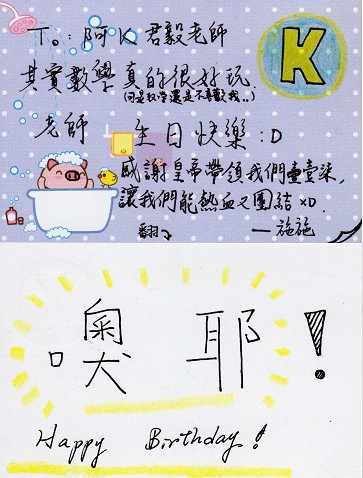 To:阿K君毅老師
K
其實數學真的很好玩
(可是数学還是不喜歡我..)
老師 生日快樂:D
感謝皇帝帶領我們壹壹柒,
讓我們能熱血又團結XD.
翻 —施施
噢耶!
Happy Birthday!